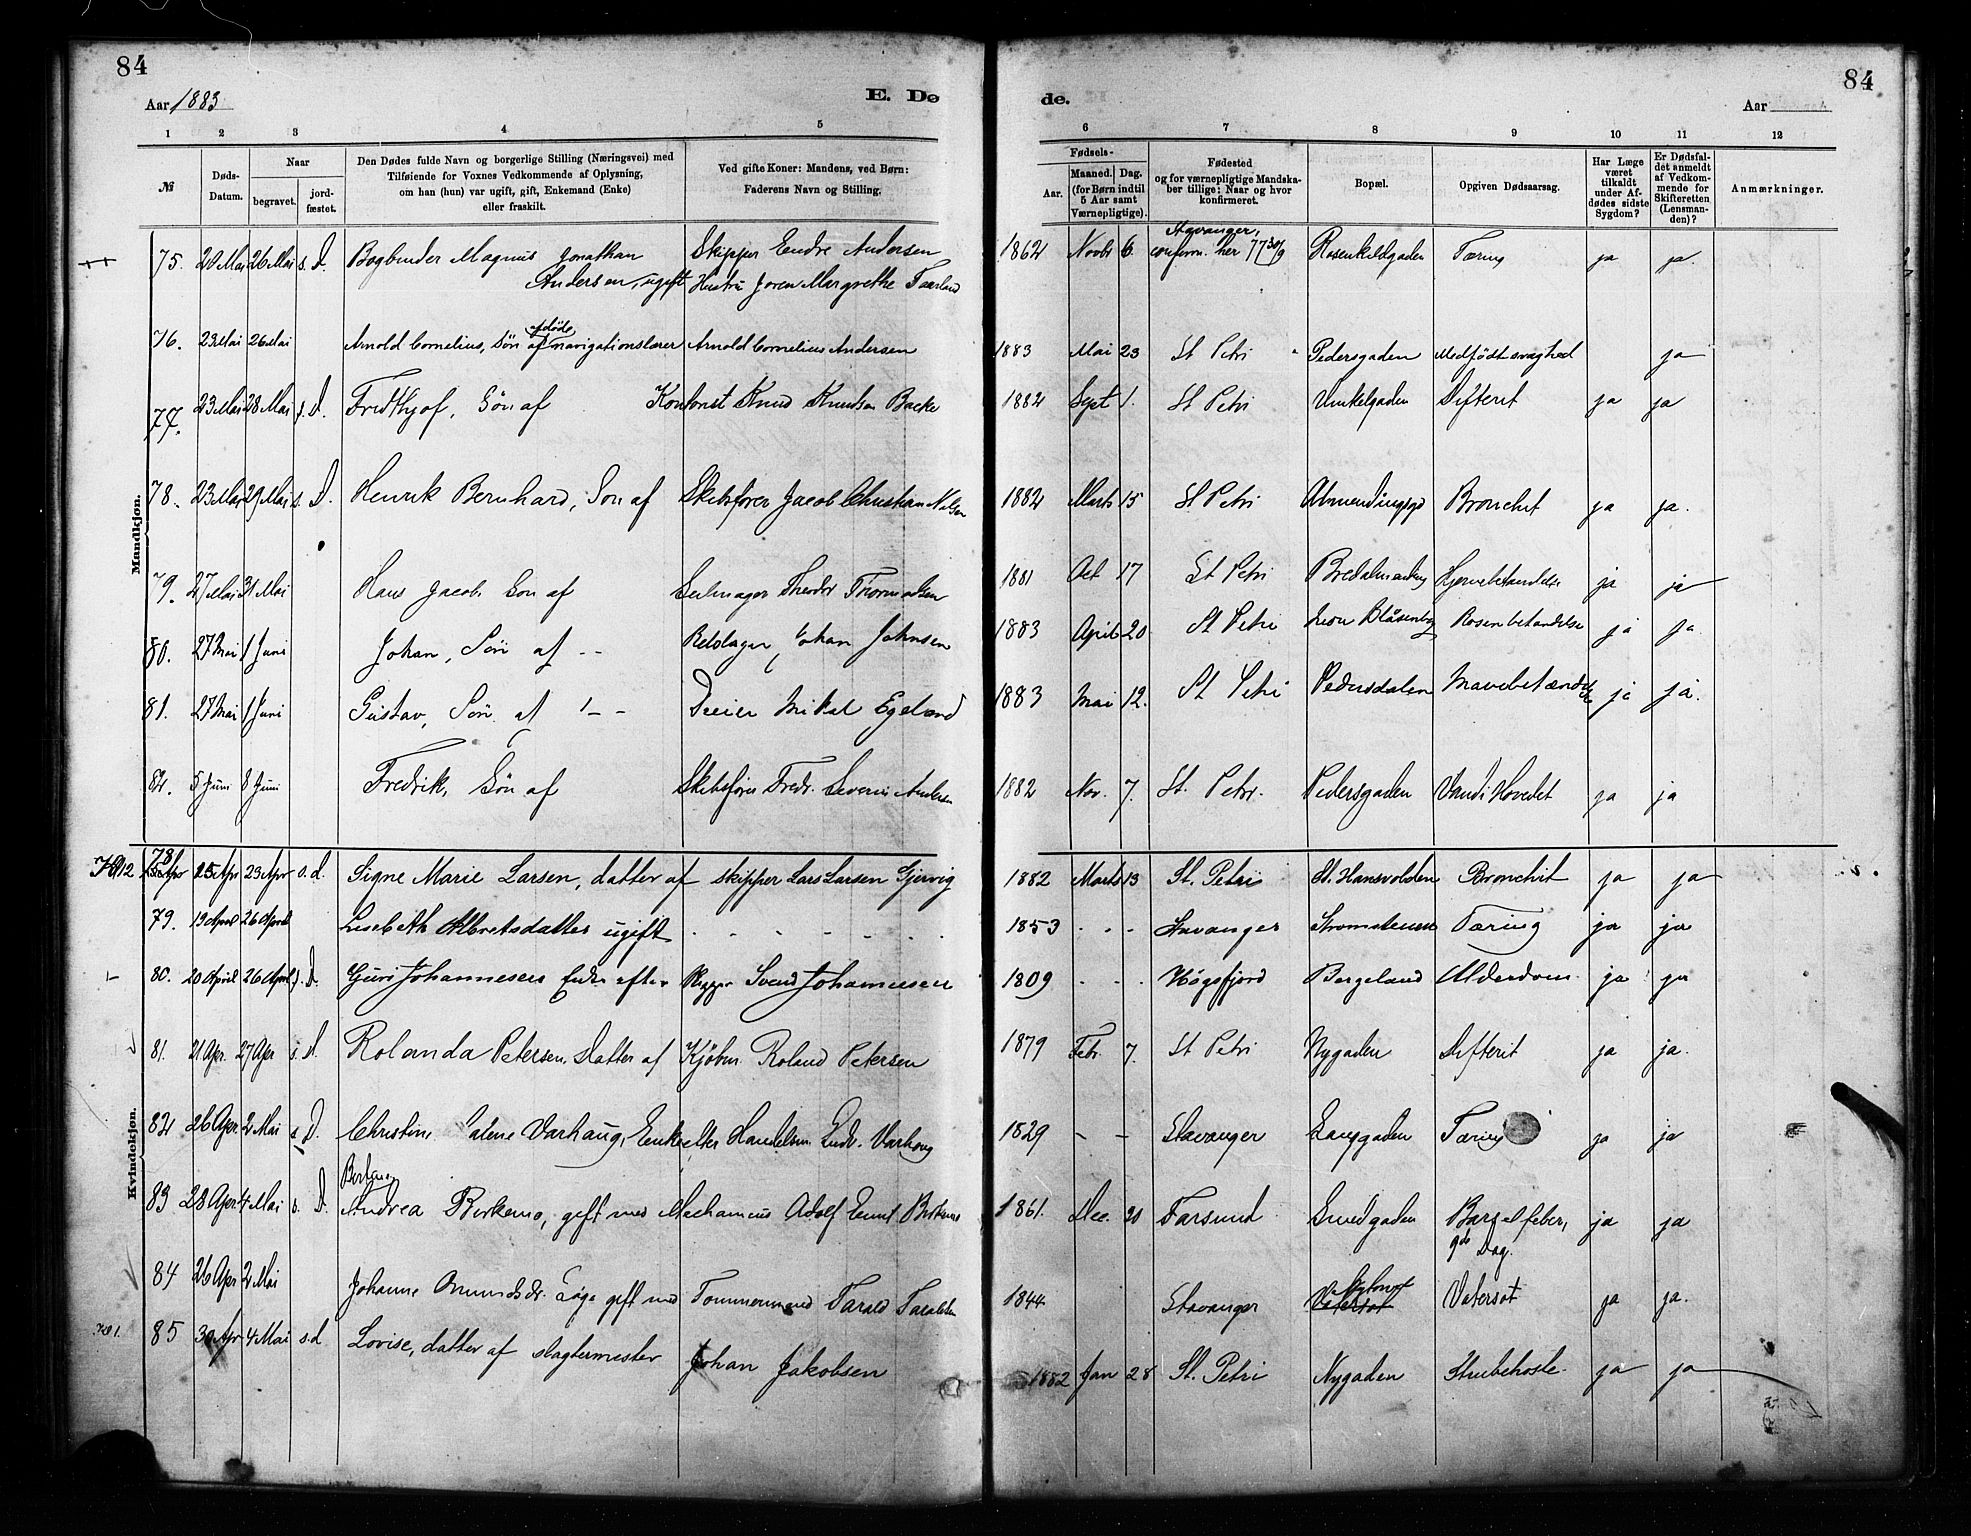 84
84
Aar 1883
E. Dø
de.
Aar
1 2 3 4 5 6 7 8 9 10 11 12
№
Døds-Datum.
Naar
begravet.
jord-fæstet.
Den Dødes fulde Navn og borgerlige Stilling (Næringsvei) med
Tilføiende for Voxnes Vedkommende af Oplysning,
om han (hun) var ugift, gift, Enkemand (Enke)
eller fraskilt.
Ved gifte Koner: Mandens, ved Børn:
Faderens Navn og Stilling.
Fødsels-
Aar.
Maaned. Dag.
(for Børn indtil
5 Aar samt
Værnepligtige).
Fødested
og for værnepligtige Mandska-
ber tillige: Naar og hvor
konfirmeret.
Bopæl.
Opgiven Dødsaarsag.
Har Læge
været
tilkaldt
under Af-
dødes sidste
Sygdom?
Er Dødsfal-
det anmeldt
af Vedkom-
mende for
Skifteretten
(Lensman-
den)?
Anmærkninger.
Mandkjøn.
75. 20 Mai 26 Mai s. D. Bogbinder Magnus Jonathan Skipper Endre Andersen 1862 Novbr 6 Stavanger, Rosenkildgaden Tæring ja ja.
Andersen, ugift Hustru Joren Margrethe confirm. her 77 30/9
76. 23 Mai 26 Mai Arnold Cornelius, søn af afdøde navigationslærer Arnold Cornelius Andersen 1883 Mai 23 St Petri Pedersgaden Medfødt svaghed ja
77. 23 Mai 28 Mai s. D. Fridthjof, Søn af Kontorist Knud Knudsen Backe 1882 Sept 1. St Petri Vinkelgaden Difterit ja ja
78. 23 Mai 29 Mai s. D. Henrik Bernhard, Søn af Skibsfører Jacob Christian Nilsen 1882 Marts 15 St Petri Bronchit ja ja.
79. 27 Mai 31 Mai Hans Jacob Søn af Seilmager Theodor 1881 Oct 17 St Petri ja ja
80. 27 Mai 1 Juni Johan, Søn af -- Rebslager Johan Johnsen 1883 April 20 St Petri Rosenbetændelse ja ja
81. 27 Mai 1 Juni Gustav, Søn af -- Dreier Mikal Egeland 1883 Mai 12. St Petri Pedersdalen Mavebetændelse ja ja.
82. 5 Juni 8 Juni Fredrik, Søn af Skibsfører Fredr. Severin Andersen 1882 Nov. 7. St. Petri. Pedersgaden Vand i Hovedet ja ja
Kvindekjøn.
78 15 Apr 23 Apr s. d. Signe Marie Larsen, datter af skipper Lars Larsen Gjervig 1882 Marts 13 St. Petri St. Hansvolden Bronchit ja ja
79. 19 April 26 April Lisebeth Albretsdatter ugift 1853 - - Stavanger Strømstenen Tæring ja ja
80. 20 April 26 April s. D. Guri Johannesen Enke efter Skipper Svend Johannesen 1809 Høgsfjord Bergeland Alderdom ja ja
81. 21 Apr. 27 Apr s. d. Rolanda Petersen, datter af Kjøbm. Roland Petersen 1879 Febr. 7. St Petri Nygaden Difterit ja ja.
82 26 Apr. 2 Mai s D. Christine Malene Varhaug, Enke efter Handelsm. Endr. Varhoug 1829 - - Stavanger Langgaden Tæring ja ja
83 28 Apr. 4 Mai s. D. Andrea Birkemo, gift med Mechanicus Adolf 1861. Dec. 20 Farsund Smedgaden Barselfeber, ja ja
9de Dag.
84 26 Apr 2 Mai Johanne gift med Tømmermand Tarald Taraldsen 1844 Stavanger Vatersot ja ja.
85 30 Apr 4 Mai s. d Lovise, datter af slagtermester Johan Jakobsen 1882 Jan 28 St. Petri Nygaden Strubehoste ja ja